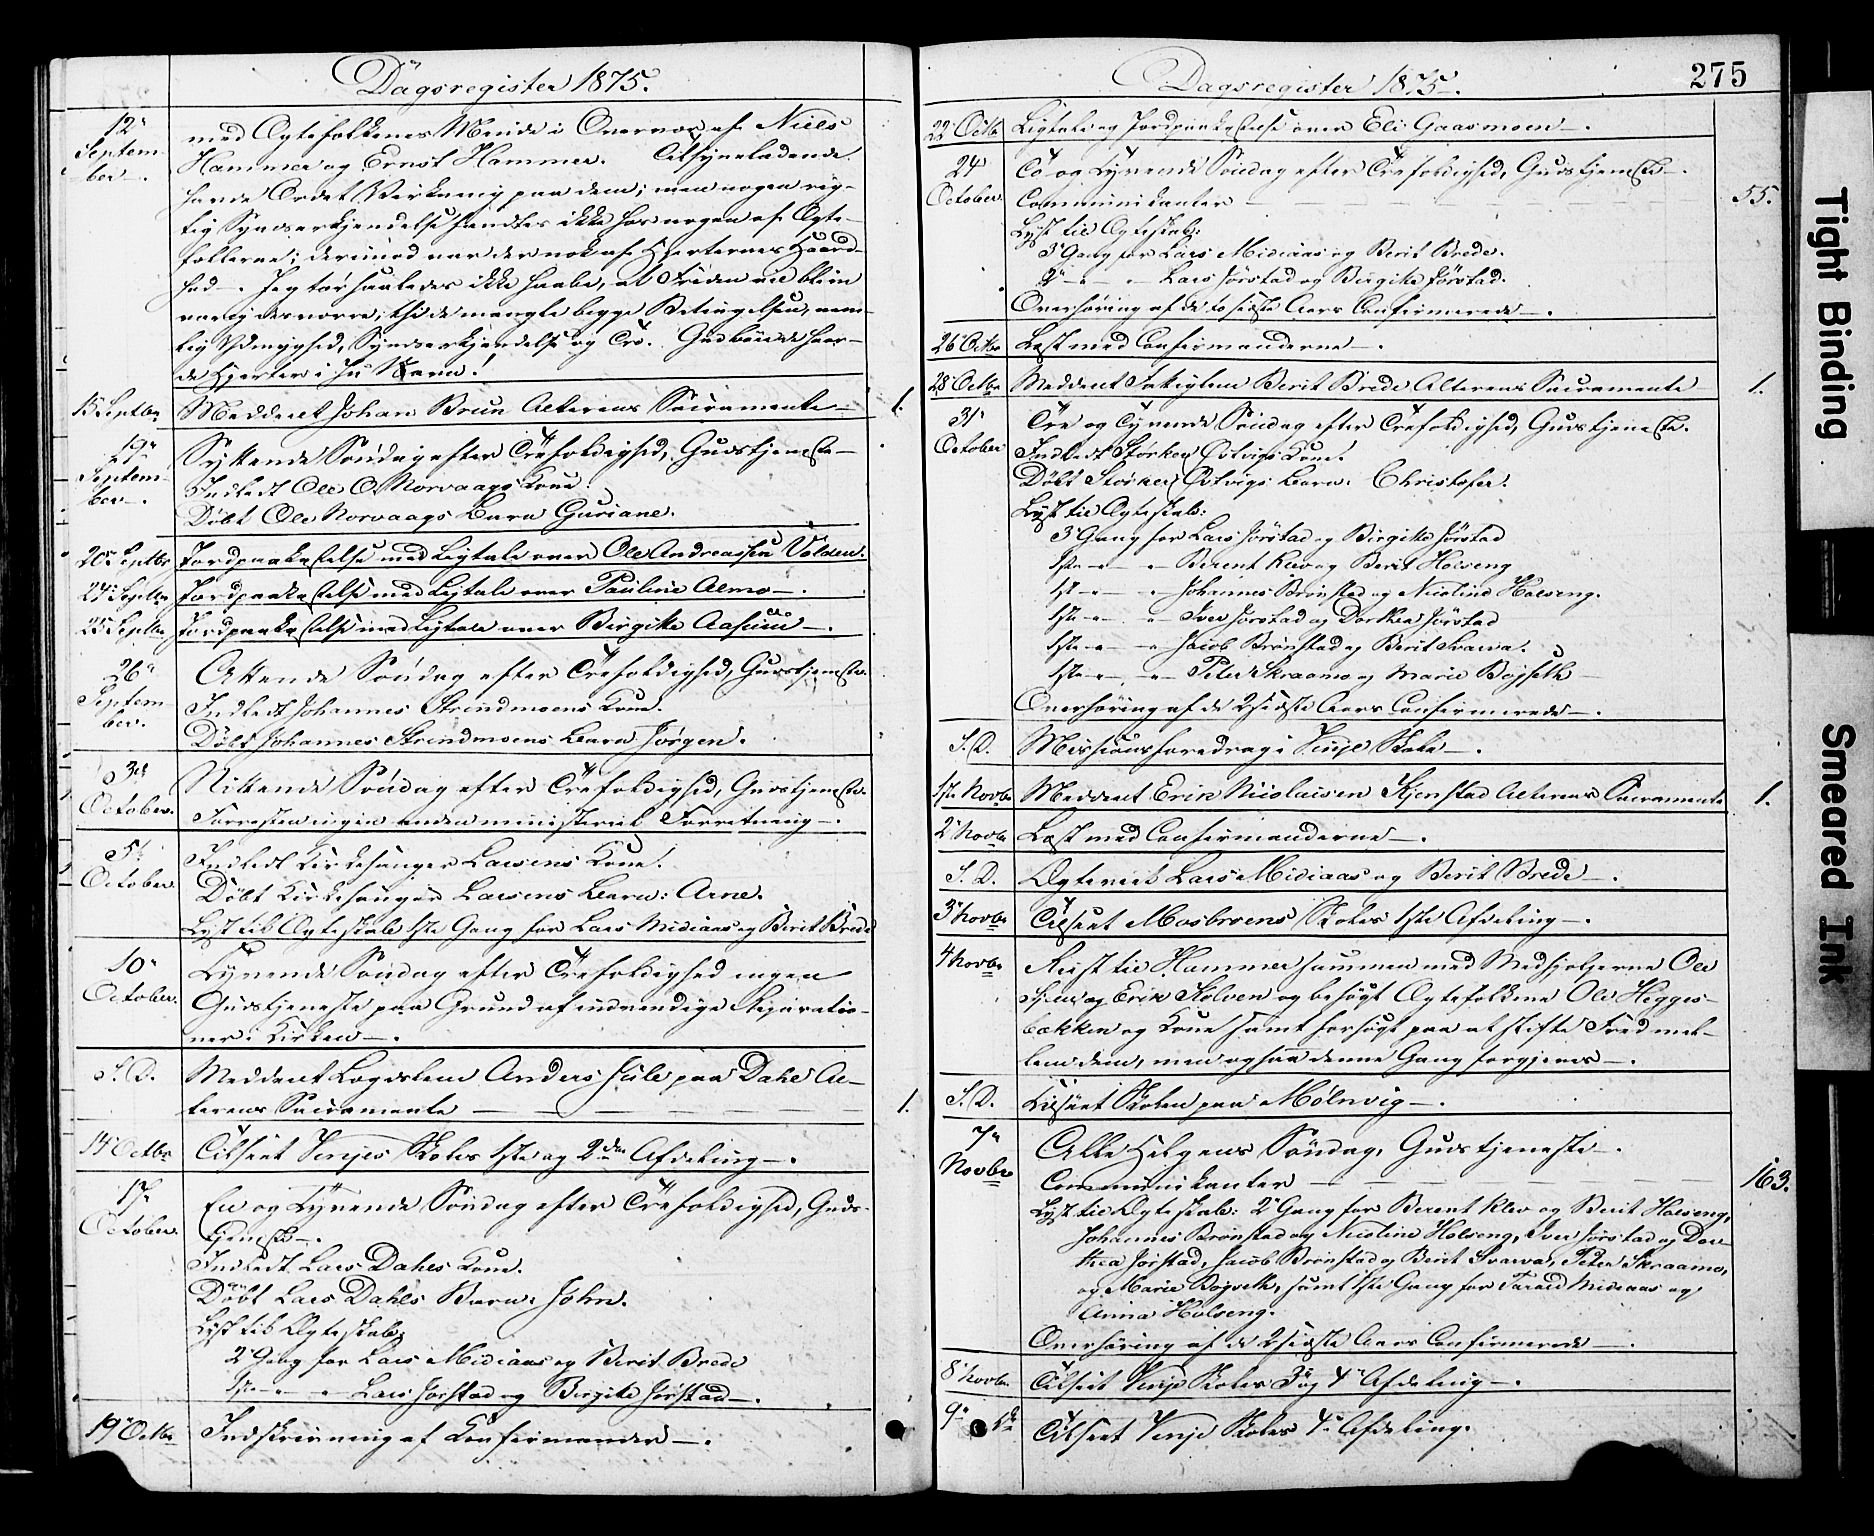 Dagsregister 1875.
12te
Septem-
ber
med Ægtefolkenes Minde i Overvær af Niels
Hammer og Ernst Hammer. Tilsyneladende
havde Ordet Virkning paa dem; men nogen rig-
tig Syndserkjendelse fandtes ikke hos nogen af Ægte-
follerne; derimod var der nok af Hjerternes Haard-
hed. Jeg tør saaledes ikke haabe, at Freden vil blive
varig desværre; thi de mangle begge Betingelsen, nem-
lig Ydmyghed, Syndserkjendelse og Tro. Gud bøie de haar-
de Hjerter i Jesu Navn!
15 Septbr Meddeelt Johan Brun Alterens Sacramente — 1.
19de
Septem-
ber
Syttende Søndag efter Trefoldighed, Gudstjeneste
Indledt Ole O. Norvaags Kone
Døbt Ole Norvaags Barn Guriane.
20 Septbr Jordpaakastelse med Ligtale over Ole Andreassen Volden.
24 Septbr Jordpaakastelse med Ligtale over Pauline Almo —.
25 Septbr Jordpaakastelse med Ligtale over Birgitte Aasum —.
26de
Septem-
ber.
Attende Søndag efter Trefoldighed, Gudstjeneste.
Indledt Johannes Strindmoens Kone.
Døbt Johannes Strindmoens Barn Jørgen.
3die
October.
Nittende Søndag efter Trefoldighed, Gudstjeneste.
Forresten ingen anden ministeriel Forretning —.
5te
October.
Indledt Kirkesanger Larsens Kone.
Døbt Kirkesanger Larsens Barn: Arne.
Lyst til Ægteskab 1ste Gang for Lars Midiaas og Berit Brede
10de
October.
Tyvende Søndag efter Trefoldighed ingen
Gudstjeneste paa Grund af indvendige Reparatio-
ner i Kirken —.
S. D. Meddeelt Lægdslem Anders Jule paa Dahl Al-
terens Sacramente — 1.
14 Octbr Tilseet Vinjes Skoles 1ste og 2den Afdeling —.
17de
October.
En og Tyvende Søndag efter Trefoldighed, Guds-
tjeneste —.
Indledt Lars Dahls Kone.
Døbt Lars Dahls Barn: John.
Lyst til Ægteskab:
2 Gang for Lars Midiaas og Berit Brede
1ste — " — " Lars Jørstad og Birgitte Jørstad —.
19 Octbr Indskrivning af Konfirmander —.
Dagsregister 1875.
275
22 Octbr Ligtale og Jordpaakastelse over Eli Gaasmoen —.
24
October.
To og Tyvende Søndag efter Trefoldighed, Gudstjeneste —.
Communikanter — 55.
Lyst til Ægteskab:
3 Gang for Lars Midiaas og Berit Brede.
2 — " — " — Lars Jørstad og Birgitte Jørstad.
Overhøring af de to sidste Aars Confirmerede —.
26 Octbr Læst med Confirmanderne —.
28 Octbr Meddeelt Berit Brede Alterens Sacramente 1.
31
October
Tre og Tyvende Søndag efter Trefoldighed, Gudstjeneste.
Indledt Størker Østvigs Kone.
Døbt Størker Østvigs Barn: Christofer.
Lyst til Ægteskab:
3 Gang for Lars Jørstad og Birgitte Jørstad
1ste — " — " Berent Klev og Berit Holseng
1ste — " — " Johannes Brønstad og Nicoline Holseng.
1ste — " — " Iver Jørstad og Dorthea Jørstad
1ste — " — " Jacob Brønstad og Berit Svarva.
1ste — " — " Peter Skraamo og Marie Bøjseth —
Overhøring af de 2 sidste Aars Confirmerede —.
S. D. Missionsforedrag i Vinje Skole —.
1ste Novbr Meddeelt Erik Nicolaisen Kjenstad Alterens Sacramente 1.
2 Novbr Læst med Confirmanderne —.
S. D. Ægteviet Lars Midiaas og Berit Brede —.
3 Novbr Tilseet Mosbroens Skoles 1ste Afdeling —.
4 Novbr Reist til Hammer sammen med Medhjelperne Ole
og Erik Kolven og besøgt Ægtefolkene Ole Hegges-
bakken og Kone samt forsøgt paa at stifte Fred mel-
lem dem, men ogsaa denne Gang forgjeves —.
S. D. Tilseet Skolen paa Mølnvig —.
7de
Novbr
Alle Helgens Søndag, Gudstjeneste —.
Communikanter — 163.
Lyst til Ægteskab: 2 Gang for Berent Klev og Berit Holseng,
Johannes Brønstad og Nicoline Holseng, Iver Jørstad og Dor-
thea Jørstad, Jacob Brønstad og Berit Svarva, Peter Skraamo,
og Marie Bøjseth, samt 1ste Gang for Tarald Midiaas og
Anna Holseng.
Overhøring af de 2 sidste Aars Confirmerede —.
8 Novbr Tilseet Vinje Skoles 3 og 4 Afdeling —.
9 Tilseet Vinje Skoles 4 Afdeling.
Tight Binding
Smeared Ink